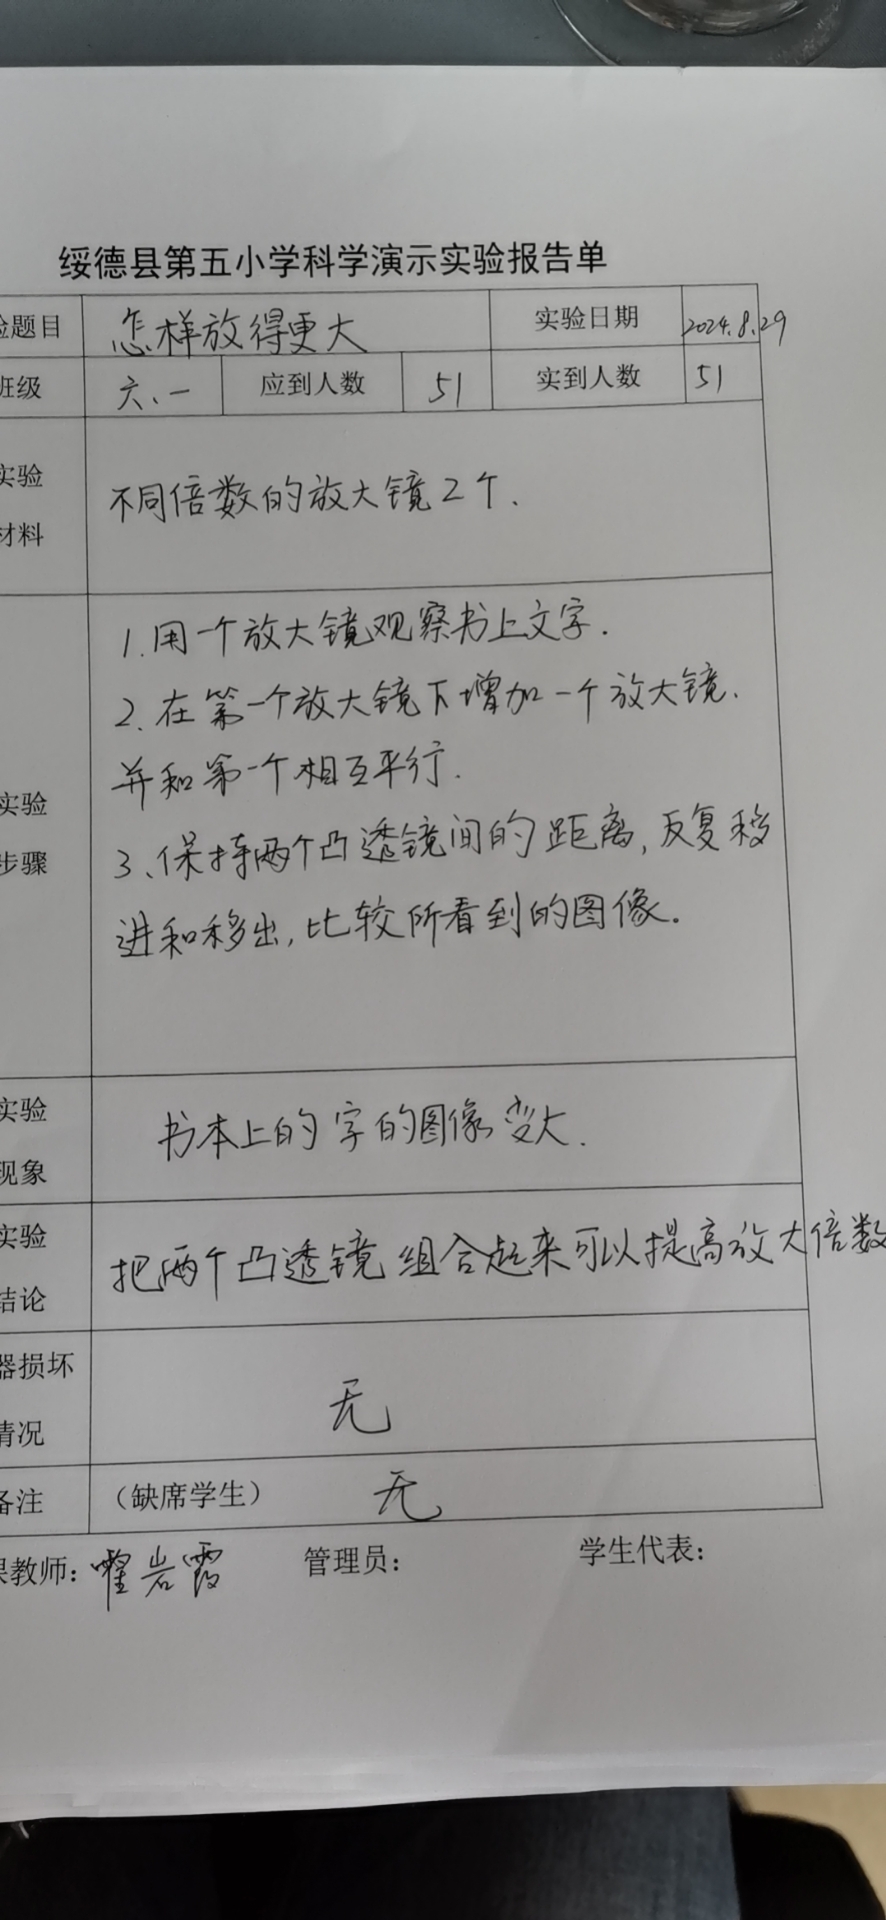 绥德县第五小学科学演示实验报告单
验题目 怎样放得更大 实验日期 2024.8.29
班级 六、一 应到人数 51 实到人数 51
实验
材料
不同倍数的放大镜2个.
实验
步骤
1.用一个放大镜观察书上文字.
2、在第一个放大镜下增加一个放大镜.
并和第一个相互平行.
3、保持两个凸透镜间的距离,反复移
进和移出,比较所看到的图像.
实验
现象
书本上的字的图像变大.
实验
结论
把两个凸透镜组合起来可以提高放大倍数
器损坏
情况
无
备注 (缺席学生) 无
课教师: 岩霞 管理员: 学生代表: